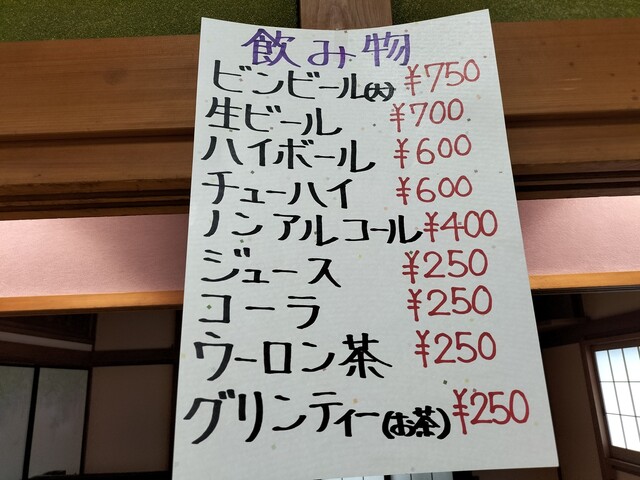 飲み物
ビンビール(大) ¥750
生ビール ¥700
ハイボール ¥600
チューハイ ¥600
ノンアルコール ¥400
ジュース ¥250
コーラ ¥250
ウーロン茶 ¥250
グリンティー(お茶) ¥250